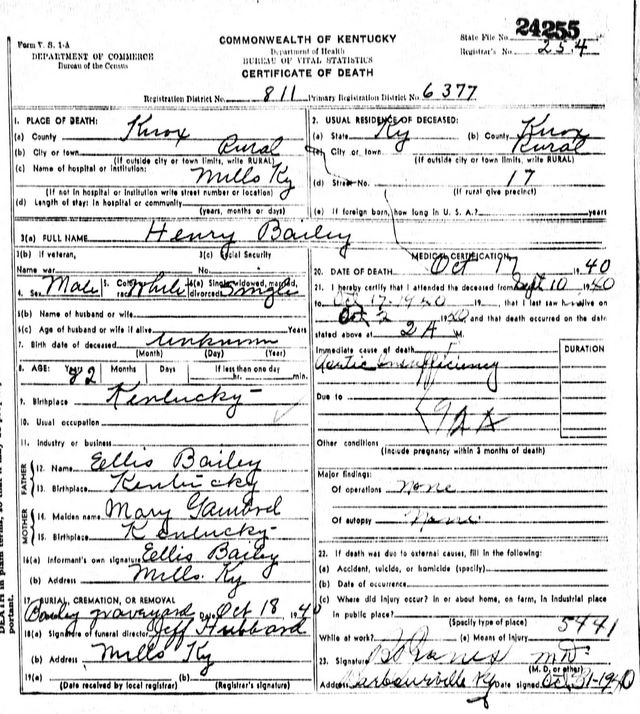 24255
COMMONWEALTH OF KENTUCKY
Form V. S. 1-A
State File No.
DEPARTMENT OF COMMERCE
Bureau of the Census
Department of Health
Registrar's No. 254
BUREAU OF VITAL STATISTICS
CERTIFICATE OF DEATH
Registration District No. 811 Primary Registration District No. 6377
1. PLACE OF DEATH:
(a) County Knox
(b) City or town Rural
(If outside city or town limits, write RURAL)
(c) Name of hospital or institution: Mills Ky
(If not in hospital or institution write street number or location)
(d) Length of stay: In hospital or community
(years, months or days)
2. USUAL RESIDENCE OF DECEASED:
(a) State Ky (b) County Knox
(c) City or town Rural
(If outside city or town limits, write RURAL)
(d) Street No. 17
(If rural give precinct)
(e) If foreign born, how long in U. S. A.? years
3(a) FULL NAME Henry Bailey
3(b) If veteran, 3(c) Social Security
Name war No.
4. Sex Male 5. Color or race White 6(a) Single, widowed, married, divorced Single
6(b) Name of husband or wife
6(c) Age of husband or wife if alive Years
7. Birth date of deceased Unknown
(Month) (Day) (Year)
8. AGE: Years 82 Months Days If less than one day
hr. min.
9. Birthplace Kentucky
10. Usual occupation
11. Industry or business
FATHER
12. Name Ellis Bailey
13. Birthplace Kentucky
MOTHER
14. Maiden name Mary
15. Birthplace Kentucky
16(a) Informant's own signature Ellis Bailey
(b) Address Mills Ky
17. BURIAL, CREMATION, OR REMOVAL
Bailey graveyard Date Oct 18 1940
18(a) Signature of funeral director Jeff Hubbard
(b) Address Mills Ky
19(a) (b)
(Date received by local registrar) (Registrar's signature)
MEDICAL CERTIFICATION
20. DATE OF DEATH Oct 17 1940
21. I hereby certify that I attended the deceased from Sept 10 1940
to Oct 17-1940 19 , that I last saw h alive on
Oct 2 1940 and that death occurred on the date
stated above at 2 A M.
Immediate cause of death
DURATION
Aortic Insufficiency
Due to
92A
Other conditions
(Include pregnancy within 3 months of death)
Major findings:
Of operations None
Of autopsy None
22. If death was due to external causes, fill in the following:
(a) Accident, suicide, or homicide (specify)
(b) Date of occurrence
(c) Where did injury occur? In or about home, on farm, in industrial place
in public place?
(Specify type of place) 5441
While at work? (e) Means of injury
23. Signature M.D.
(M. D. or other)
Address Barbourville Ky Date signed Oct 31-1940
DEATH in plain terms, so that it may be
portant.